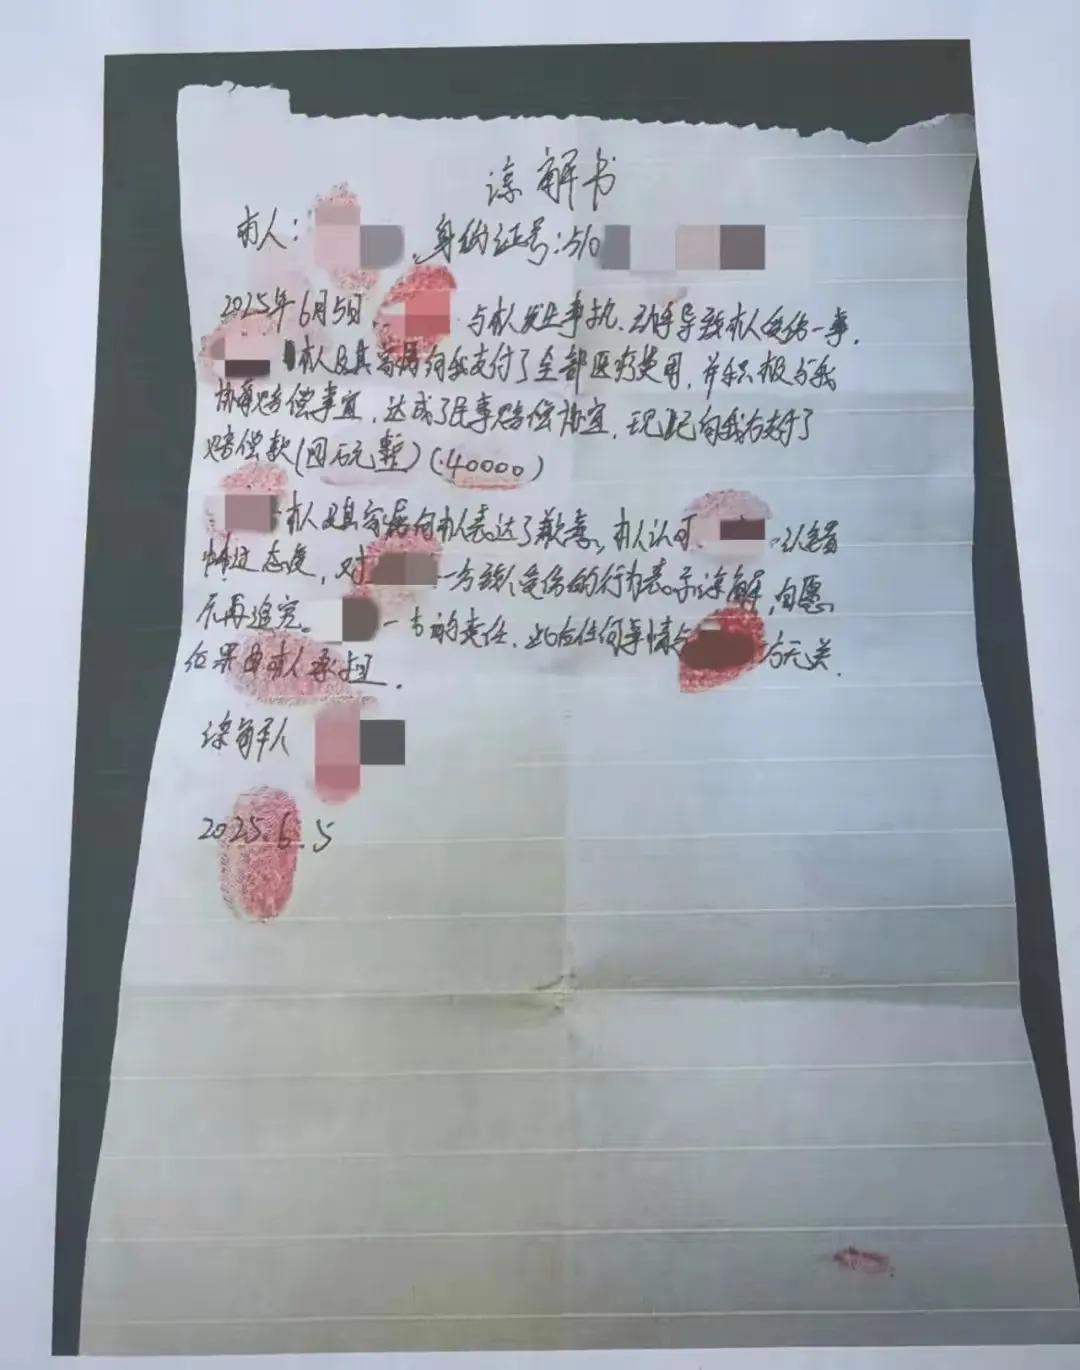 谅解书
本人: ,身份证号:510
2025年6月5日, 与本人发生争执,动手导致本人受伤一事,
本人及其家属向我支付了全部医疗费用,并积极与我
协商赔偿事宜,达成了民事赔偿协宜,现已向我方支付了
赔偿款(四万元整)(40000)
本人及其家属向本人表达了歉意,本人认可 认错
悔过态度,对 一方致人受伤的行为表示谅解,自愿
不再追究。 一方的责任,此后任何事情与 方无关.
后果由本人承担.
谅解人
2025.6.5